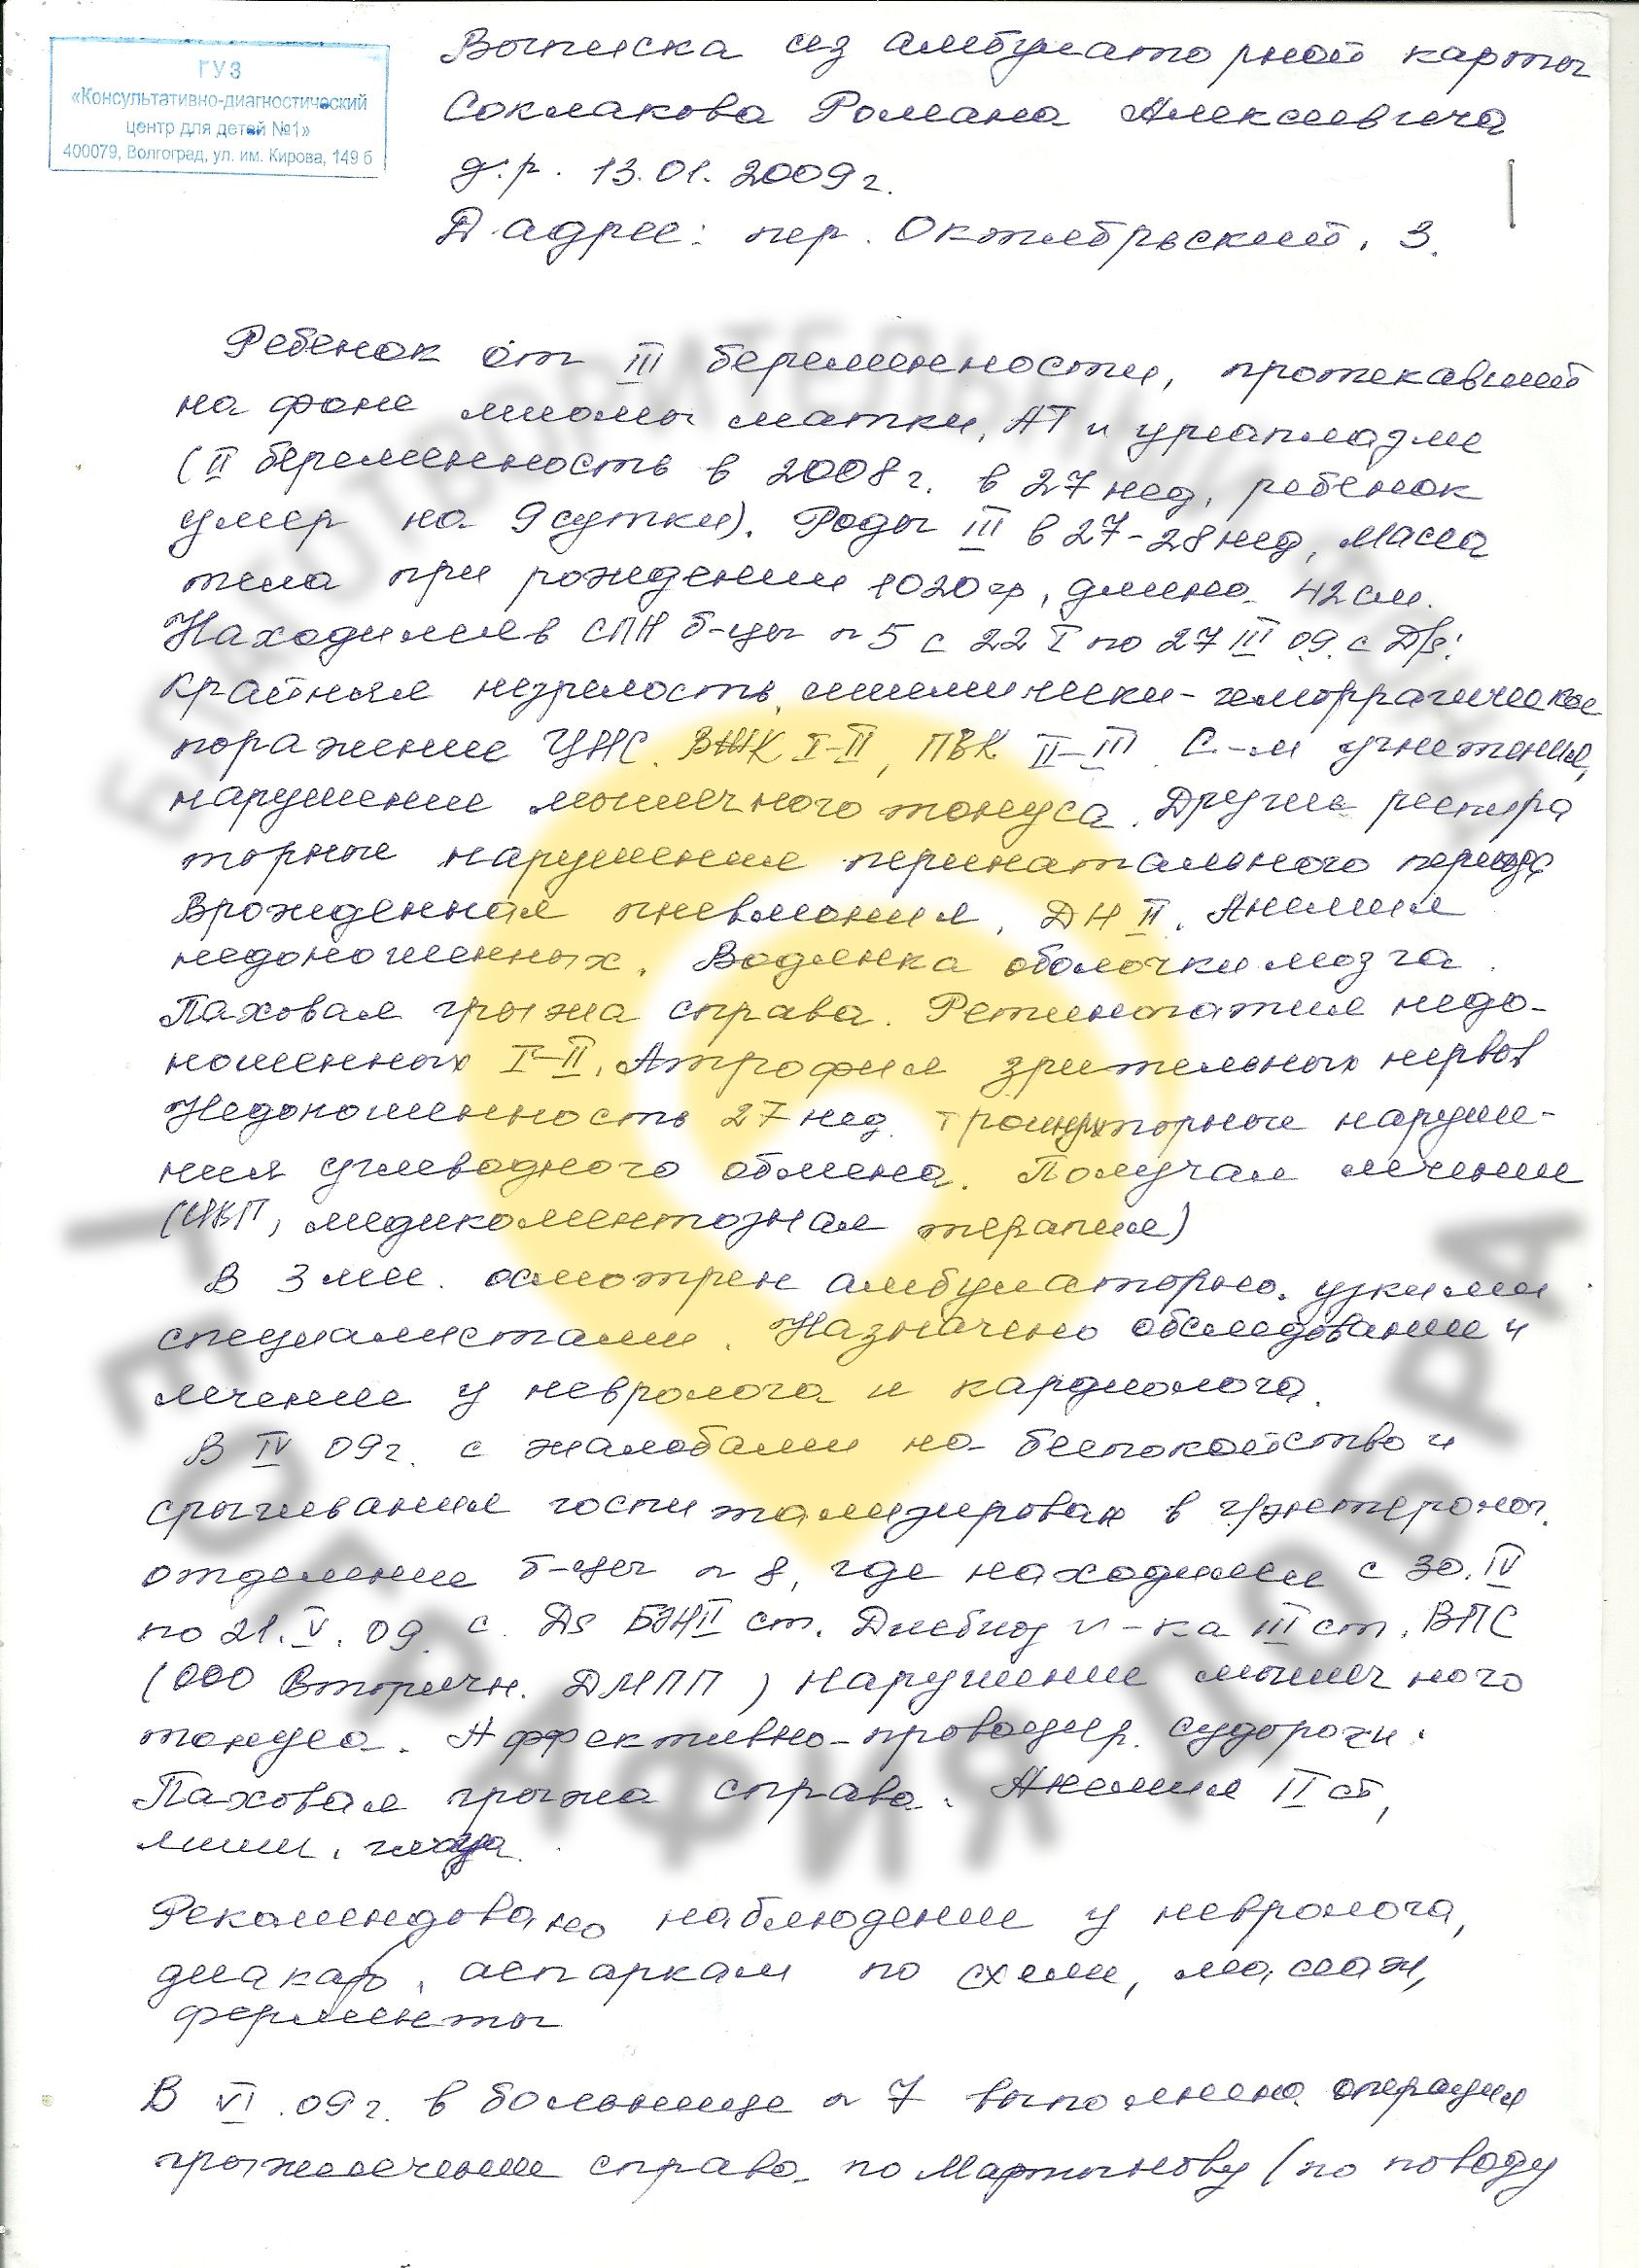 ГУЗ
«Консультативно-диагностический
центр для детей №1»
400079, Волгоград, ул. им. Кирова, 149 б
Выписка из амбулаторной карты
Соклакова Романа Алексеевича
д.р. 13.01.2009г.
Д. адрес: пер. Октябрьский, 3.
Ребенок от III беременности, протекавшей
на фоне миомы матки, АТ и уреаплазме
(II беременность в 2008г. в 27 нед, ребенок
умер на 9 сутки). Роды III в 27-28 нед, масса
тела при рождении 1020 гр, длина 42 см.
Находился в СПН б-цы n 5 с 22 I по 27 III 09. с Ds:
Крайняя незрелость, ишемически-геморрагическое
поражение ЦНС. ВЖК I-II, ПВК II-III. С-м угнетения,
нарушение мышечного тонуса. Другие респира
торные нарушения перинатального периода
Врожденная пневмония, ДН II. Анемия
недоношенных. Водянка оболочки мозга.
Паховая грыжа справа. Ретинопатия недо-
ношенных I-II. Атрофия зрительных нервов
Недоношенность 27 нед. Транзиторные наруше-
ния углеводного обмена. Получал лечение
(ИВЛ, медикаментозная терапия)
В 3 мес. осмотрен амбулаторно узкими
специалистами. Назначено обследование и
лечение у невролога и кардиолога.
В IV 09г. с жалобами на беспокойство и
срыгивания госпитализирован в г/энтеролог.
отделение б-цы n 8, где находился с 30. IV
по 21. V. 09. с Ds БЭН II ст. Дисбиоз к-ка III ст. ВПС
(ООО вторичн. ДМПП) Нарушение мышечного
тонуса. Аффективно-провоцир. судороги.
Паховая грыжа справа. Анемия II ст,
Рекомендовано наблюдение у невролога,
диакарб, аспаркам по схеме, массаж,
ферменты
В VI. 09г. в больнице n 7 выполнена операция
грыжесечение справа по Мартынову (по поводу
БЛАГОТВОРИТЕЛЬНЫЙ
ГЕОГРАФИЯ ДОБРА